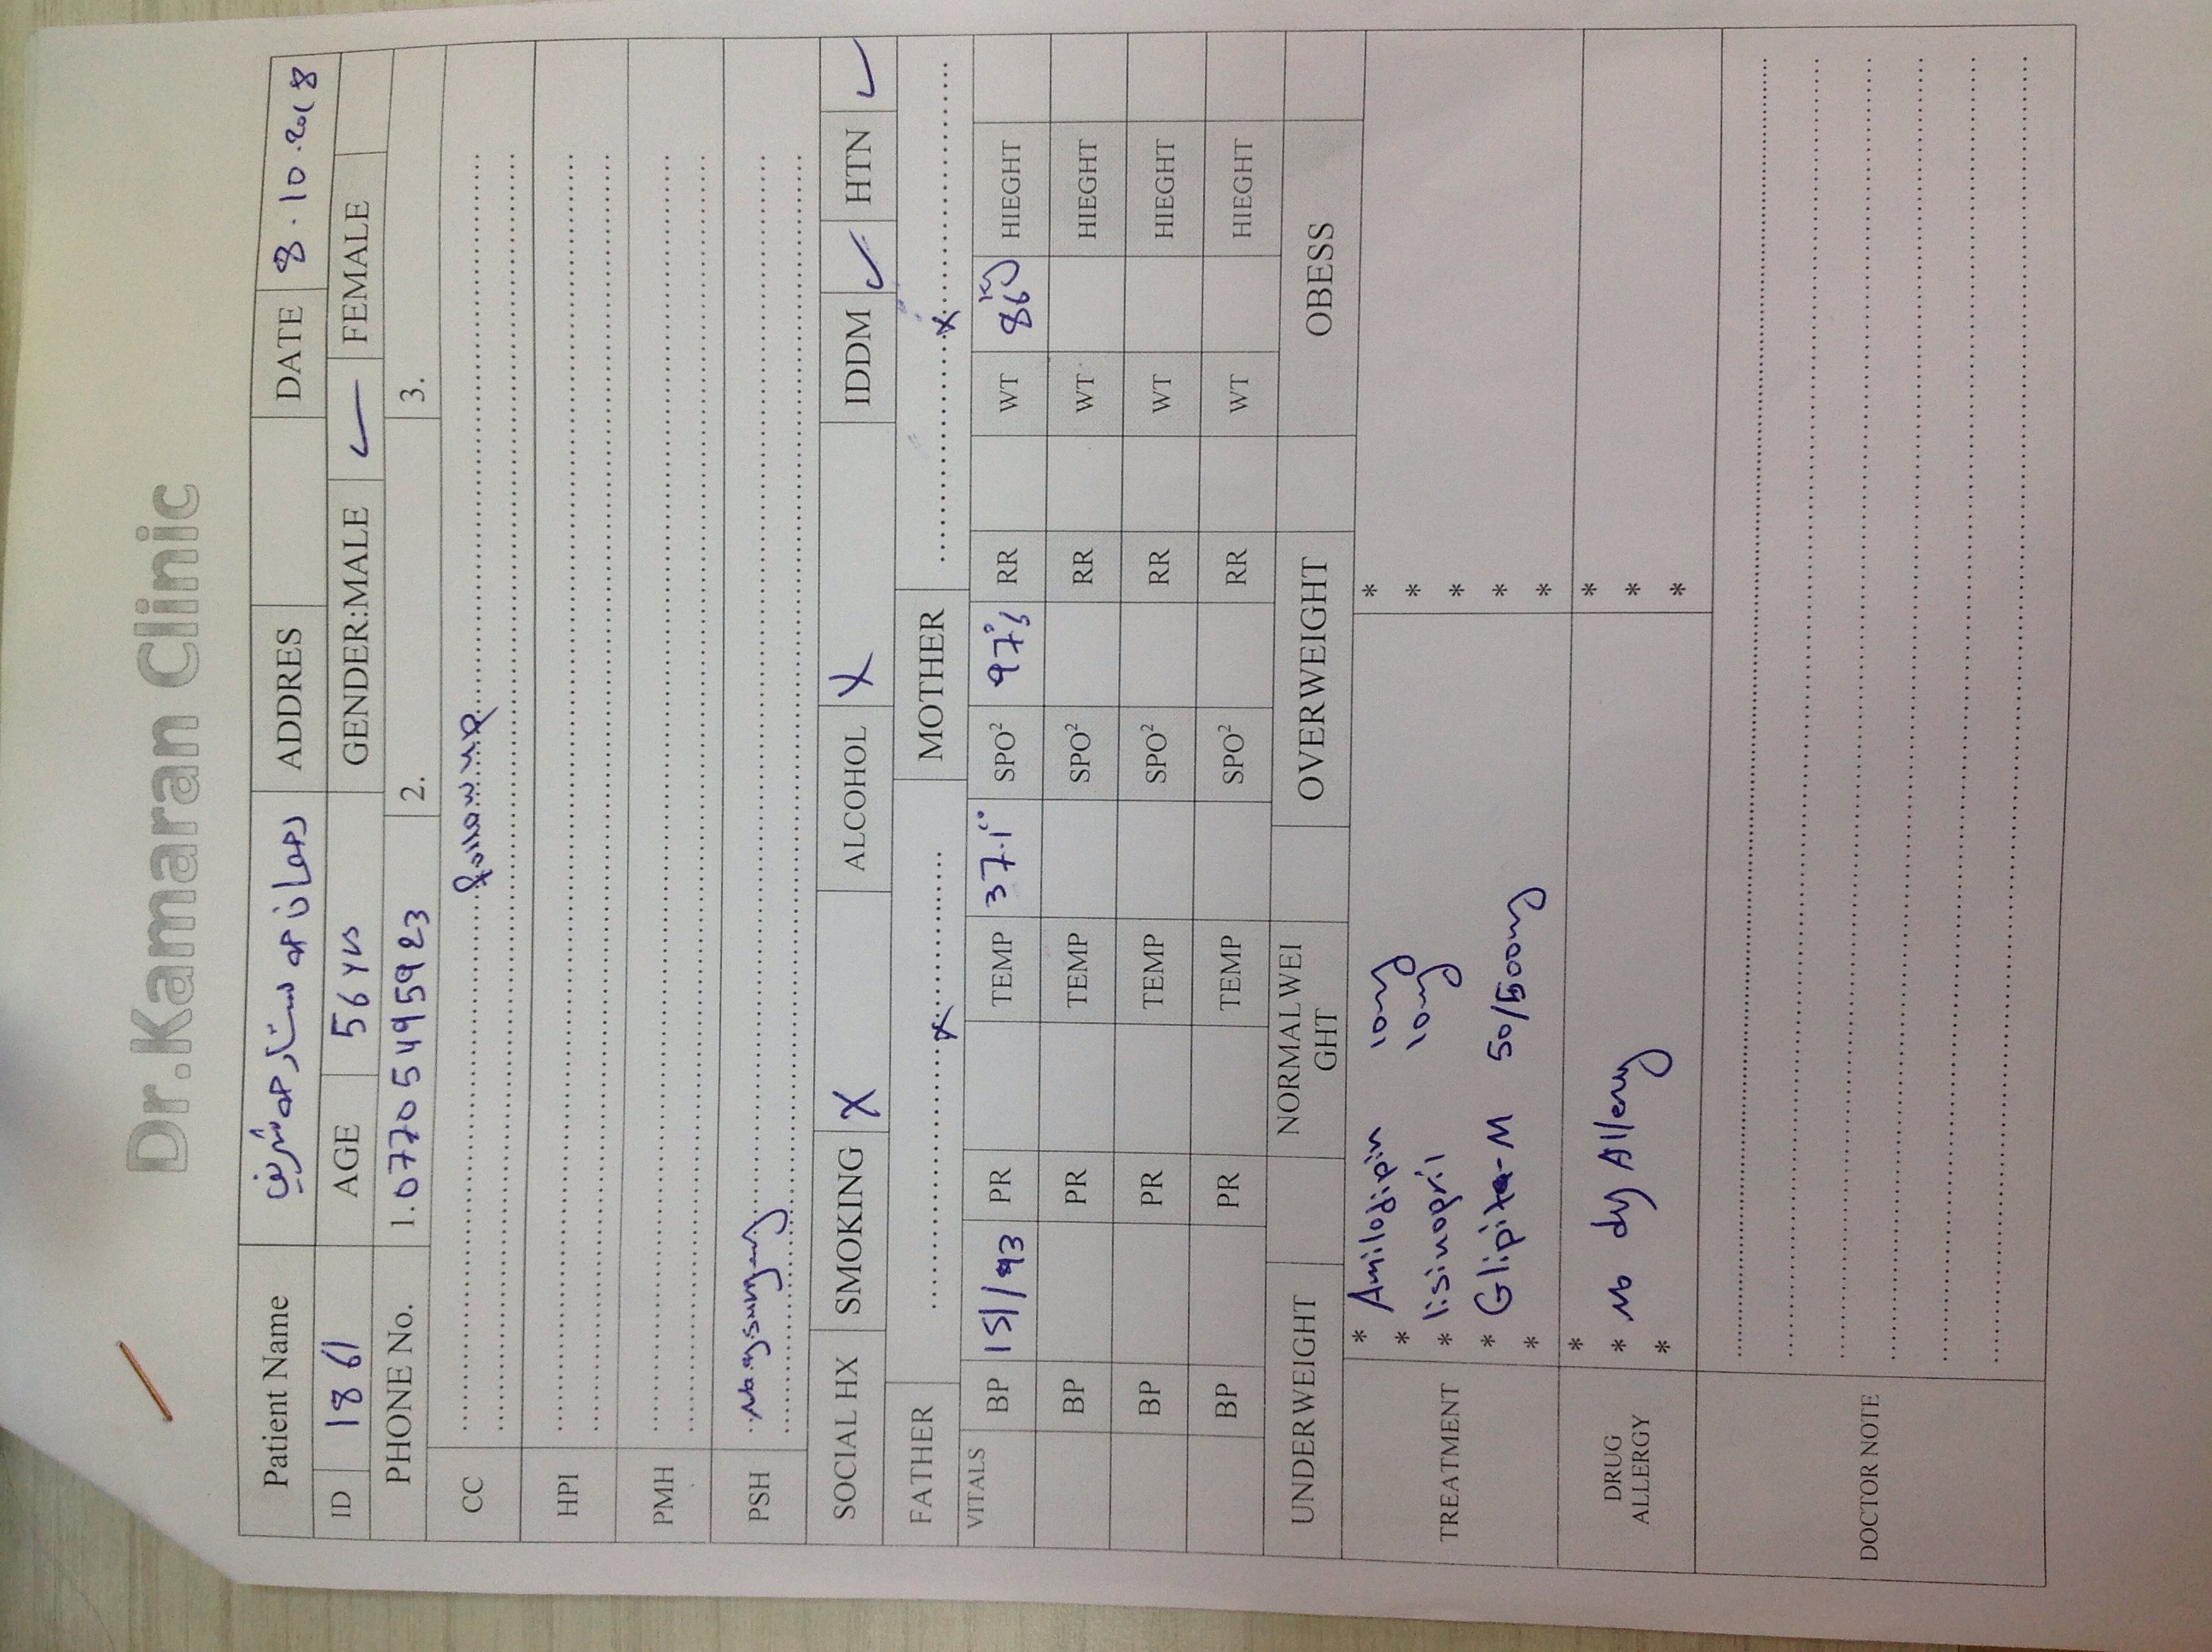 Dr.Kamaran Clinic
Patient Name ADDRES DATE 8.10.2018
ID 1861 AGE 56 yrs GENDER:MALE ✓ FEMALE
PHONE No. 1.07705495923 2. 3.
CC follow up
HPI
PMH
PSH No any surgery
SOCIAL HX SMOKING X ALCOHOL X IDDM ✓ HTN ✓
FATHER x MOTHER x
VITALS BP 151/93 PR TEMP 37.1c° SPO² 97% RR WT 86kg HIEGHT
BP PR TEMP SPO² RR WT HIEGHT
BP PR TEMP SPO² RR WT HIEGHT
BP PR TEMP SPO² RR WT HIEGHT
UNDERWEIGHT NORMALWEI
GHT OVERWEIGHT OBESS
TREATMENT
* Amilodipin 10mg *
* *
* lisinopril 10mg *
* Glipita-M 50/500mg *
* *
DRUG
ALLERGY
* *
* No drug Allergy *
* *
DOCTOR NOTE